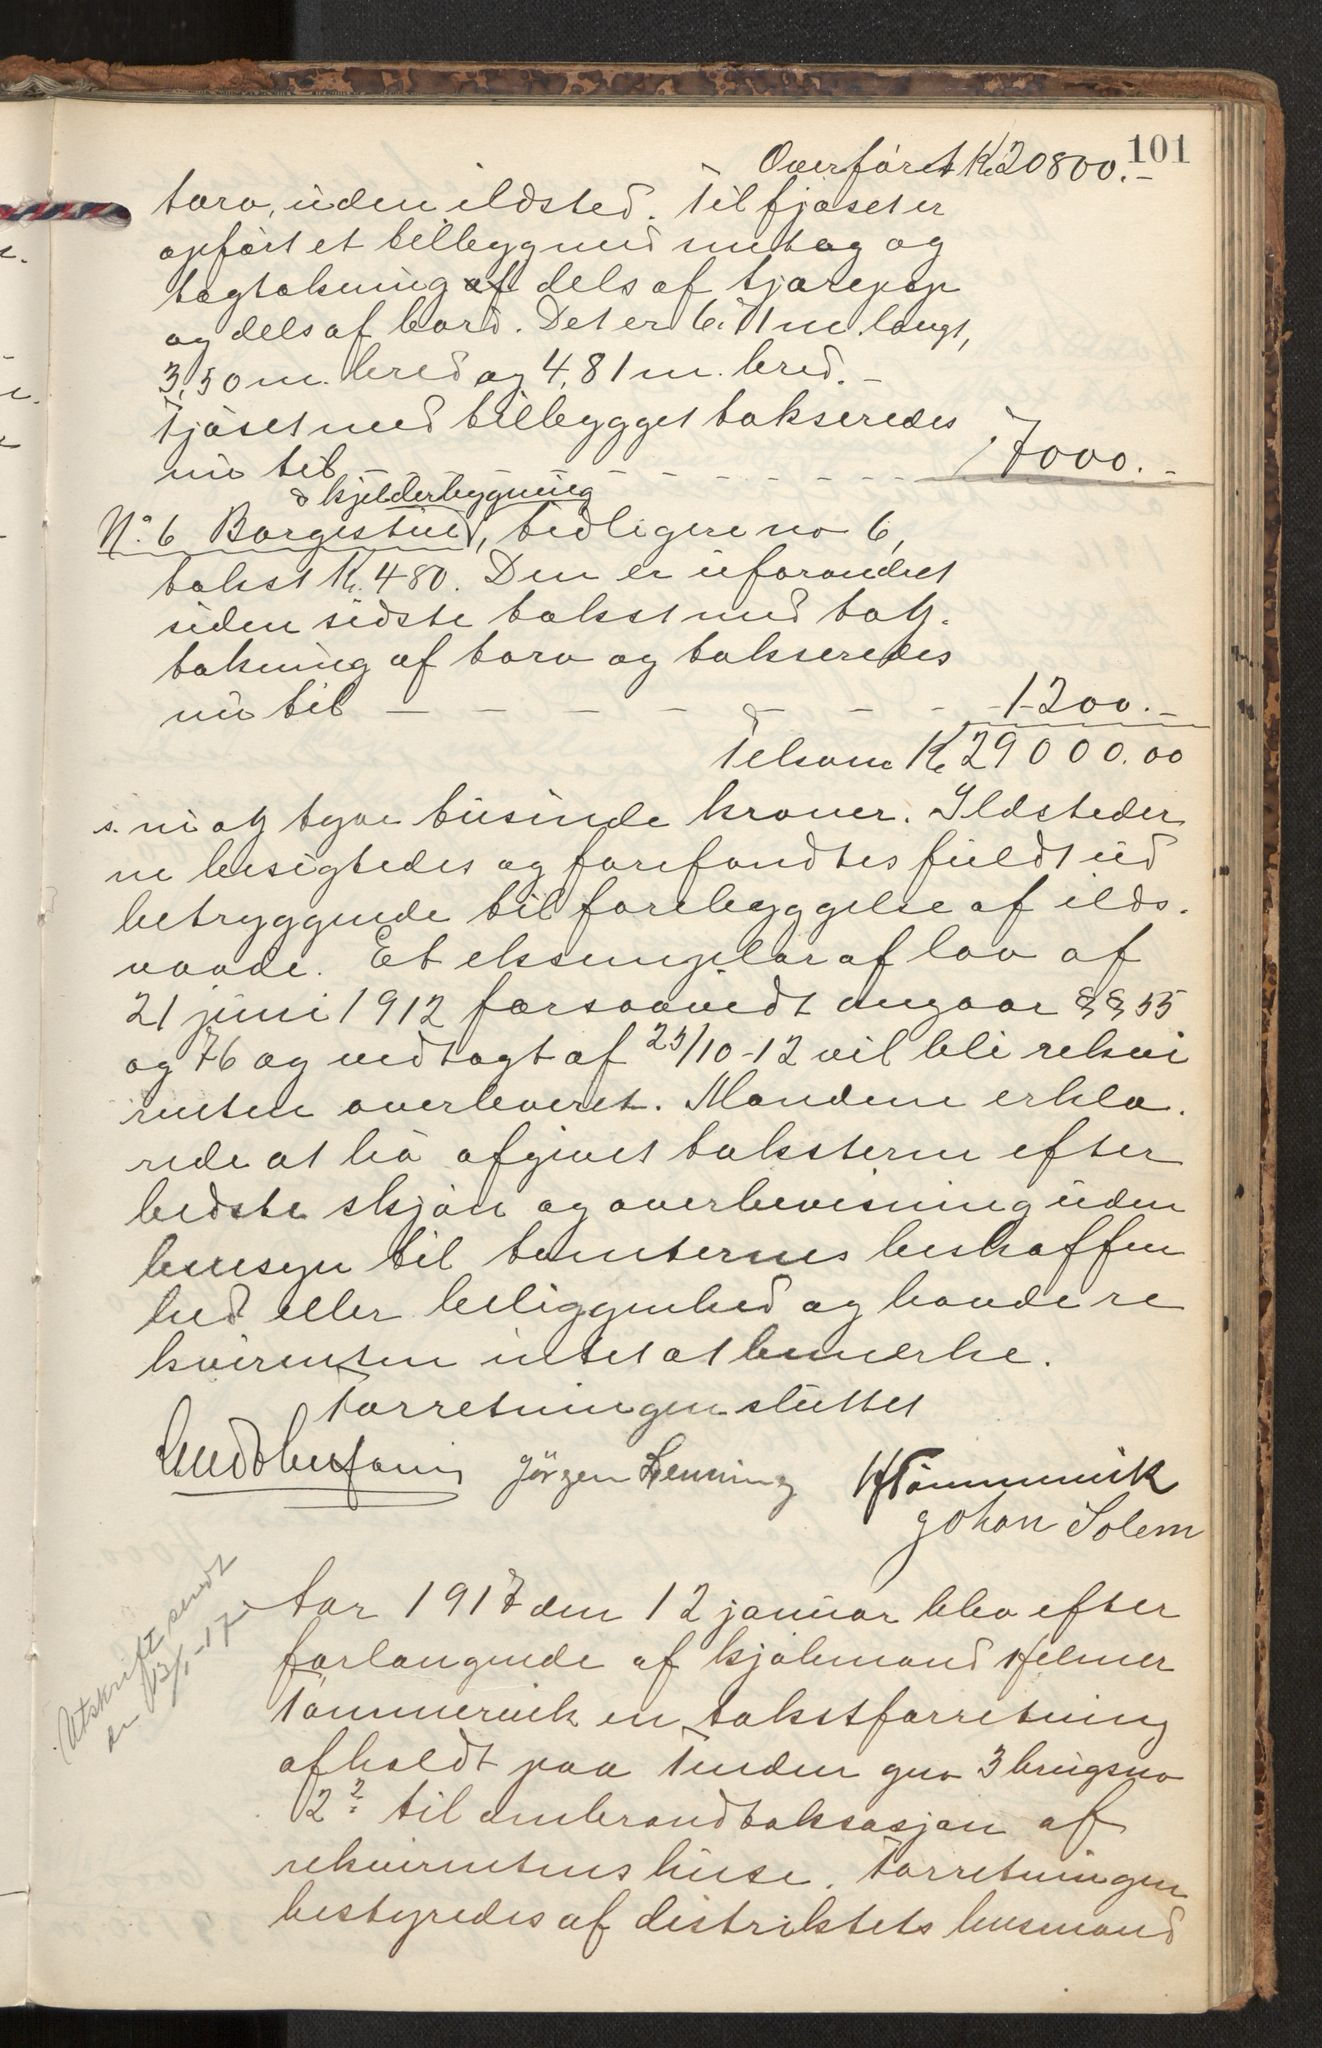 101
Overført Kr. 20800.–
torv, uden ildsted. Til fjøset er
opført et tilbygg med smtag og
tagtækning af dels af tjærepap
og dels af bord. Det er 6.71 m. langt,
3,50 m. bred og 4,81 m. bred. –
Fjøset med tilbygget takseredes
nu til – – – – – – 7000.–
& kjelderbygning
No. 6 Borgestue, tidligere no 6,
takst Kr. 480. Den er uforandret
siden sidste takst med tak-
tækning af torv og takseredes
nu til – – – – – – 1200.–
Tilsam Kr. 29000.00
s. ni og tyve tusinde kroner. Ildsteder
ne besigtedes og forefandtes fuldt ud
betryggende til forebyggelse af ilds-
vaade. Et eksemplar af lov af
21 juni 1912 forsaavidt angaar §§ 55
og 76 og vedtagt af 25/10-12 vil bli rekvi
renten overleveret. Mændene erklæ-
rede at ha afgivet taksterne efter
bedste skjøn og overbevisning uden
hensyn til tomternes beskaffen
hed eller beliggenhed og havde re
kvirenten intet at bemerke.
Forretningen sluttet
Jørgen Henning H Tømmervik
Johan Solem
Utskrift sendt
den 13/1-17
Aar 1917 den 12 januar blev efter
forlangende af kjøbmand Helmer
Tømmervik en takstforretning
afholdt paa Tinden gno 3 brugsno
2 ? til ombrandtaksasjon af
rekvirentens huse. Forretningen
bestyredes af distriktets lensmand